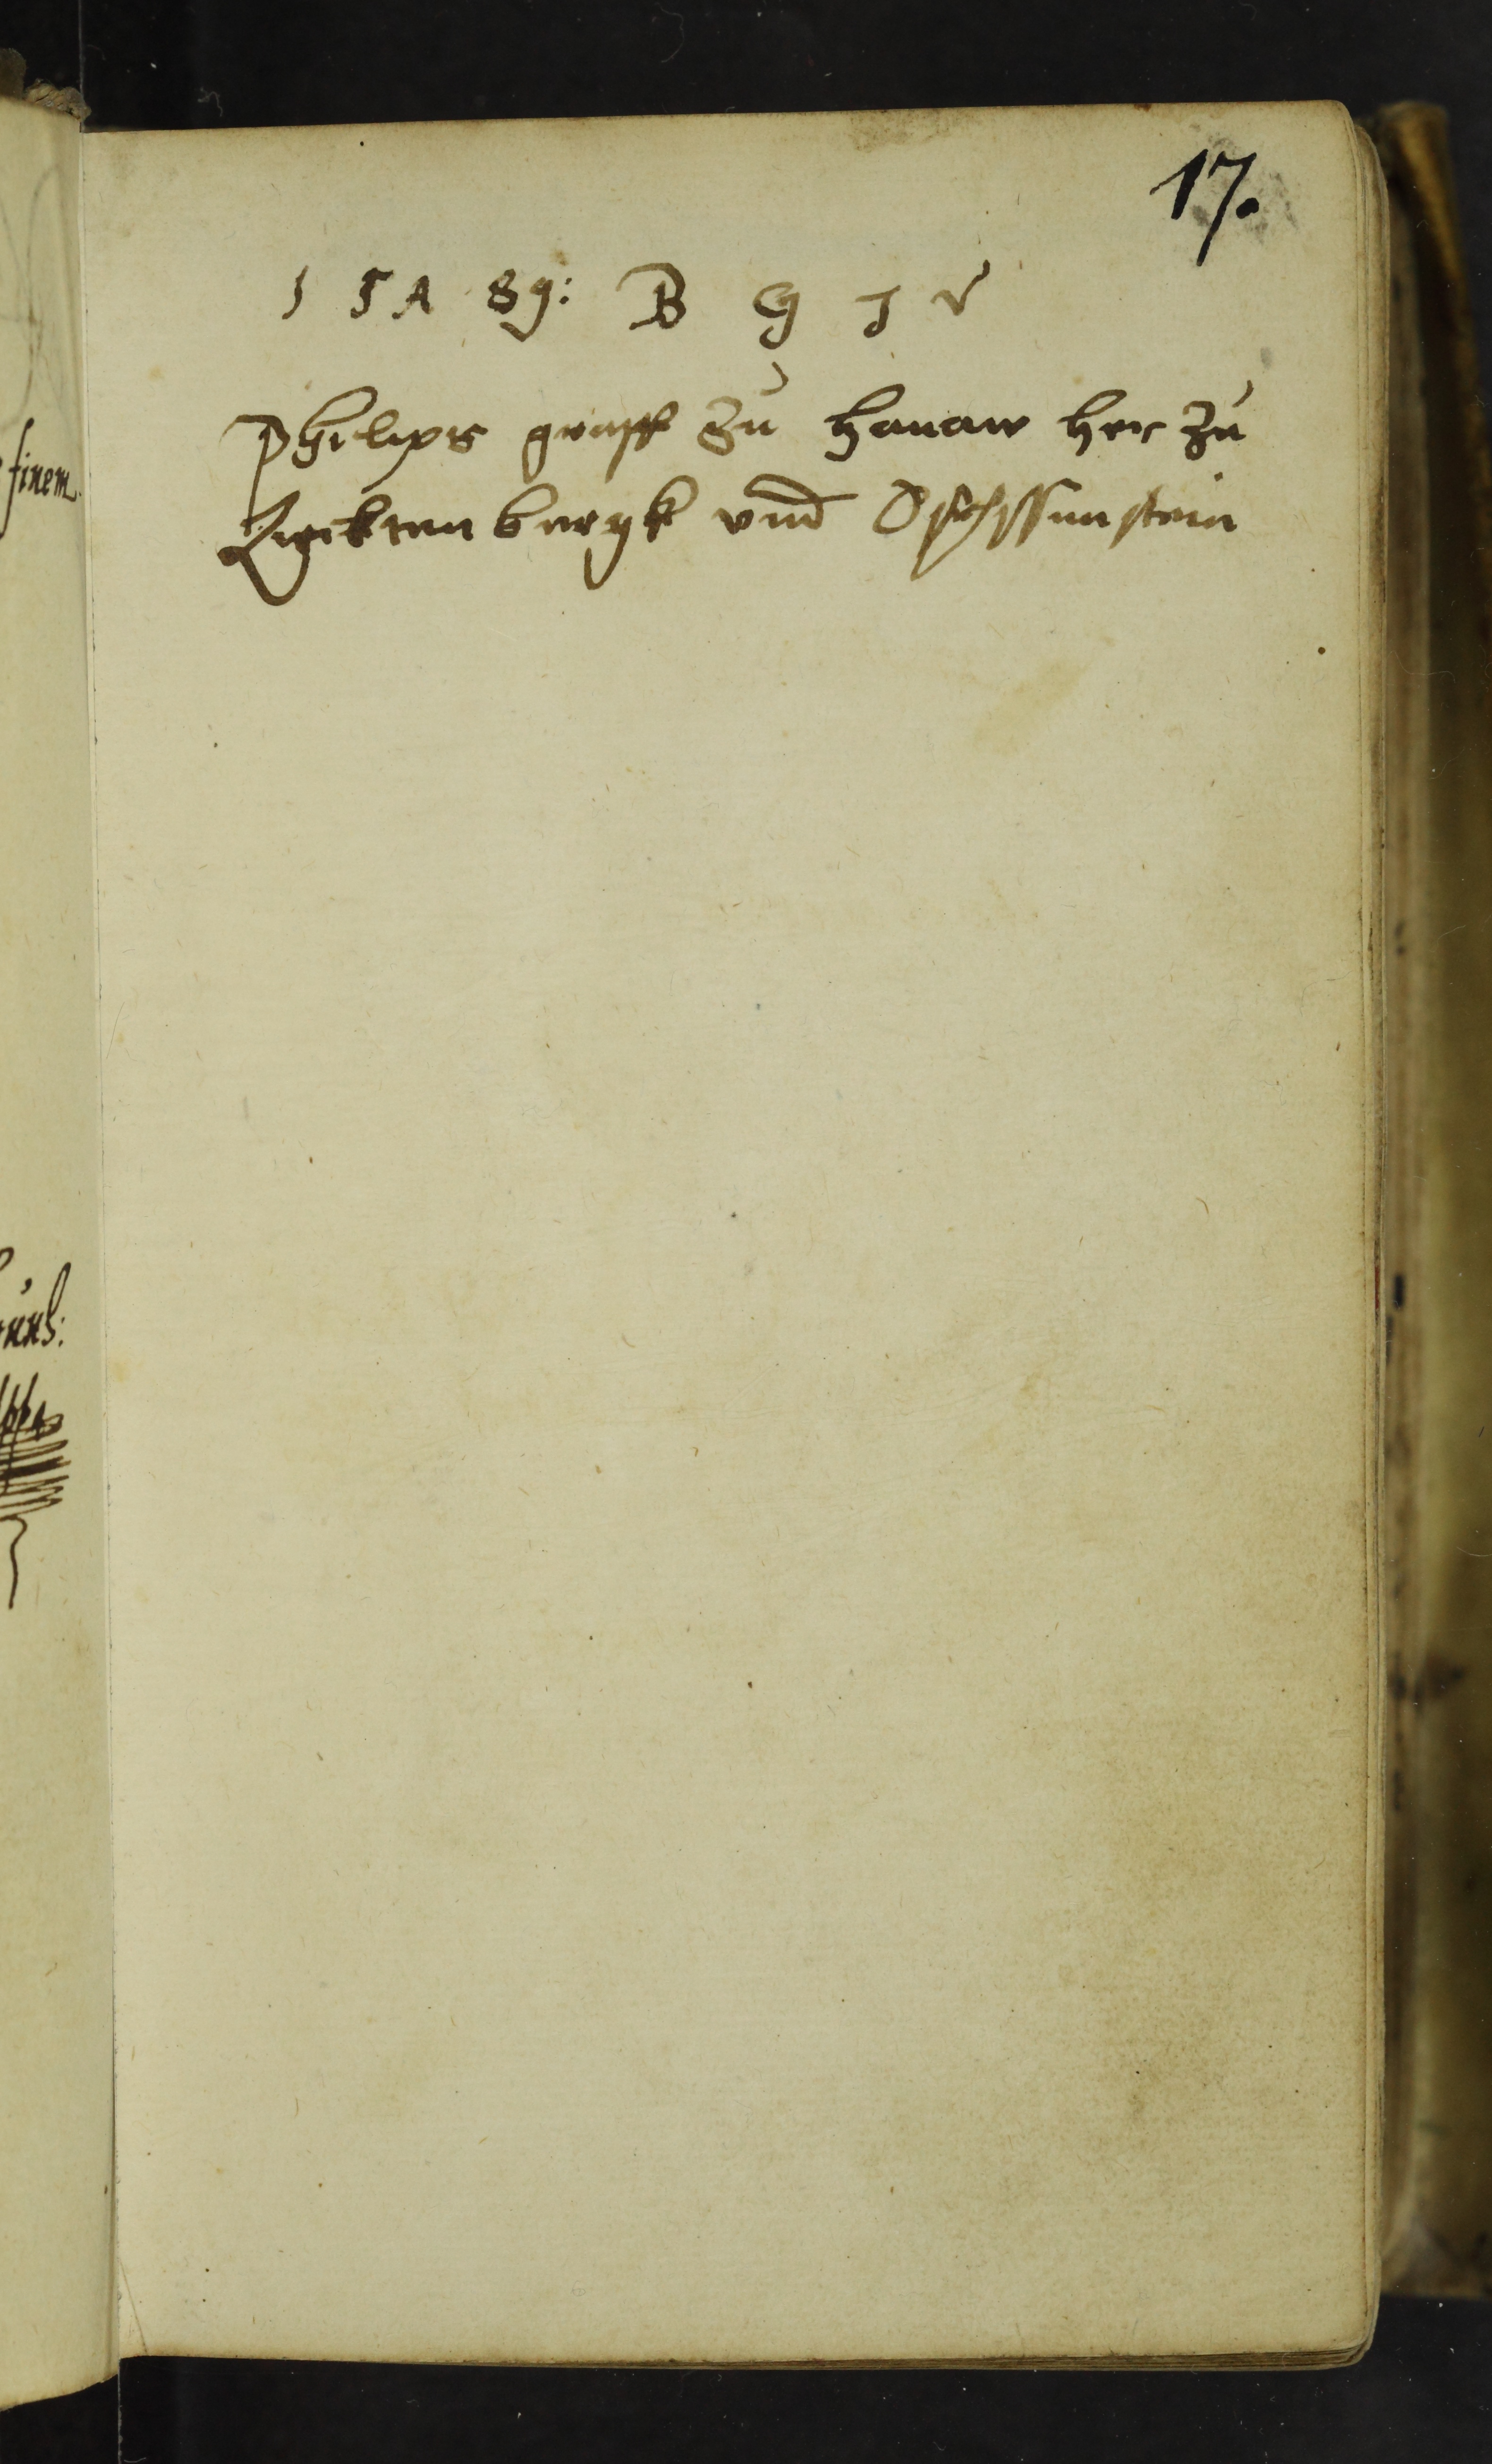 17.
1 5 A 89: B G J V
Philips graff zu hanaw her zu
Lyecktenbergk vnd Ochssenstein
finem